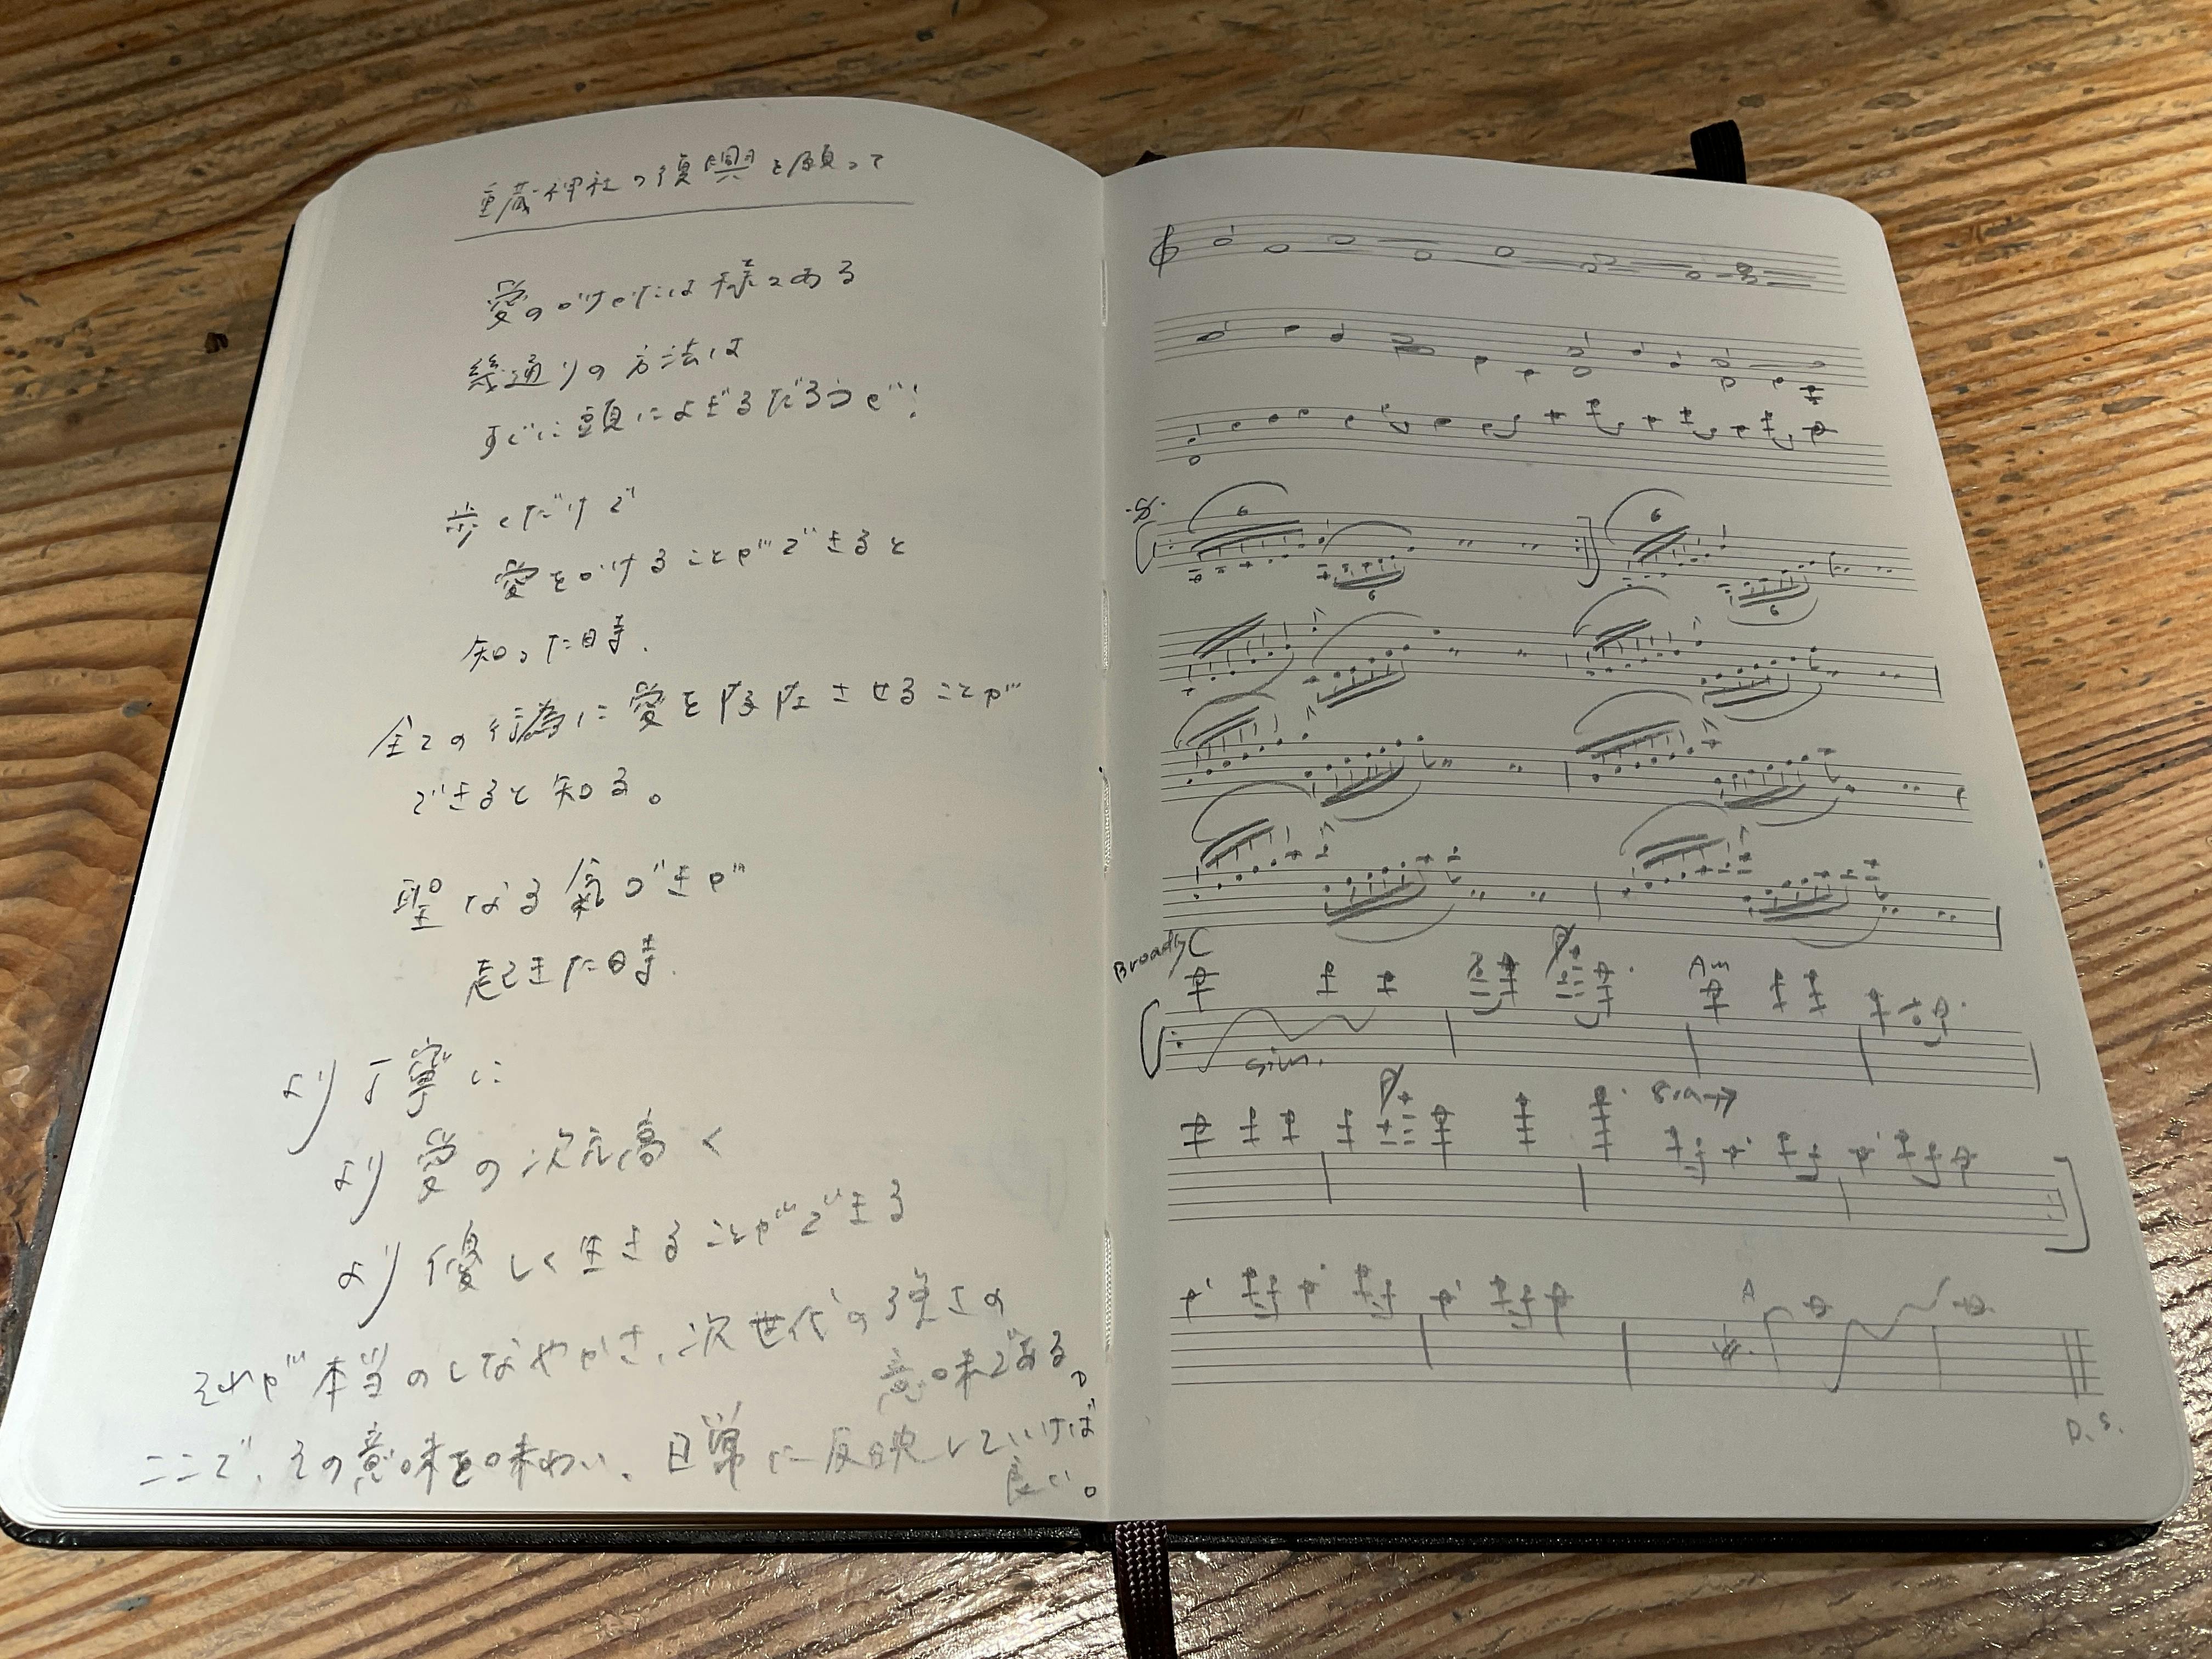 重蔵神社の復興を願って
愛のかけかたは様々ある
幾通りの方法は
すぐに頭によぎるだろうが!
歩くだけで
愛をかけることができると
知った時、
全ての行為に愛を存在させることが
できると知る。
聖なる氣づきが
起きた時、
より丁寧に
より愛の次元高く
より優しく生きることができる
それが本当のしなやかさ、次世代の強さの
意味である。
ここで、その意味を味わい、日常に反映していけば
良い。
6 6
6 6
Broadly C Am
sim.
8va→
A
D.S.